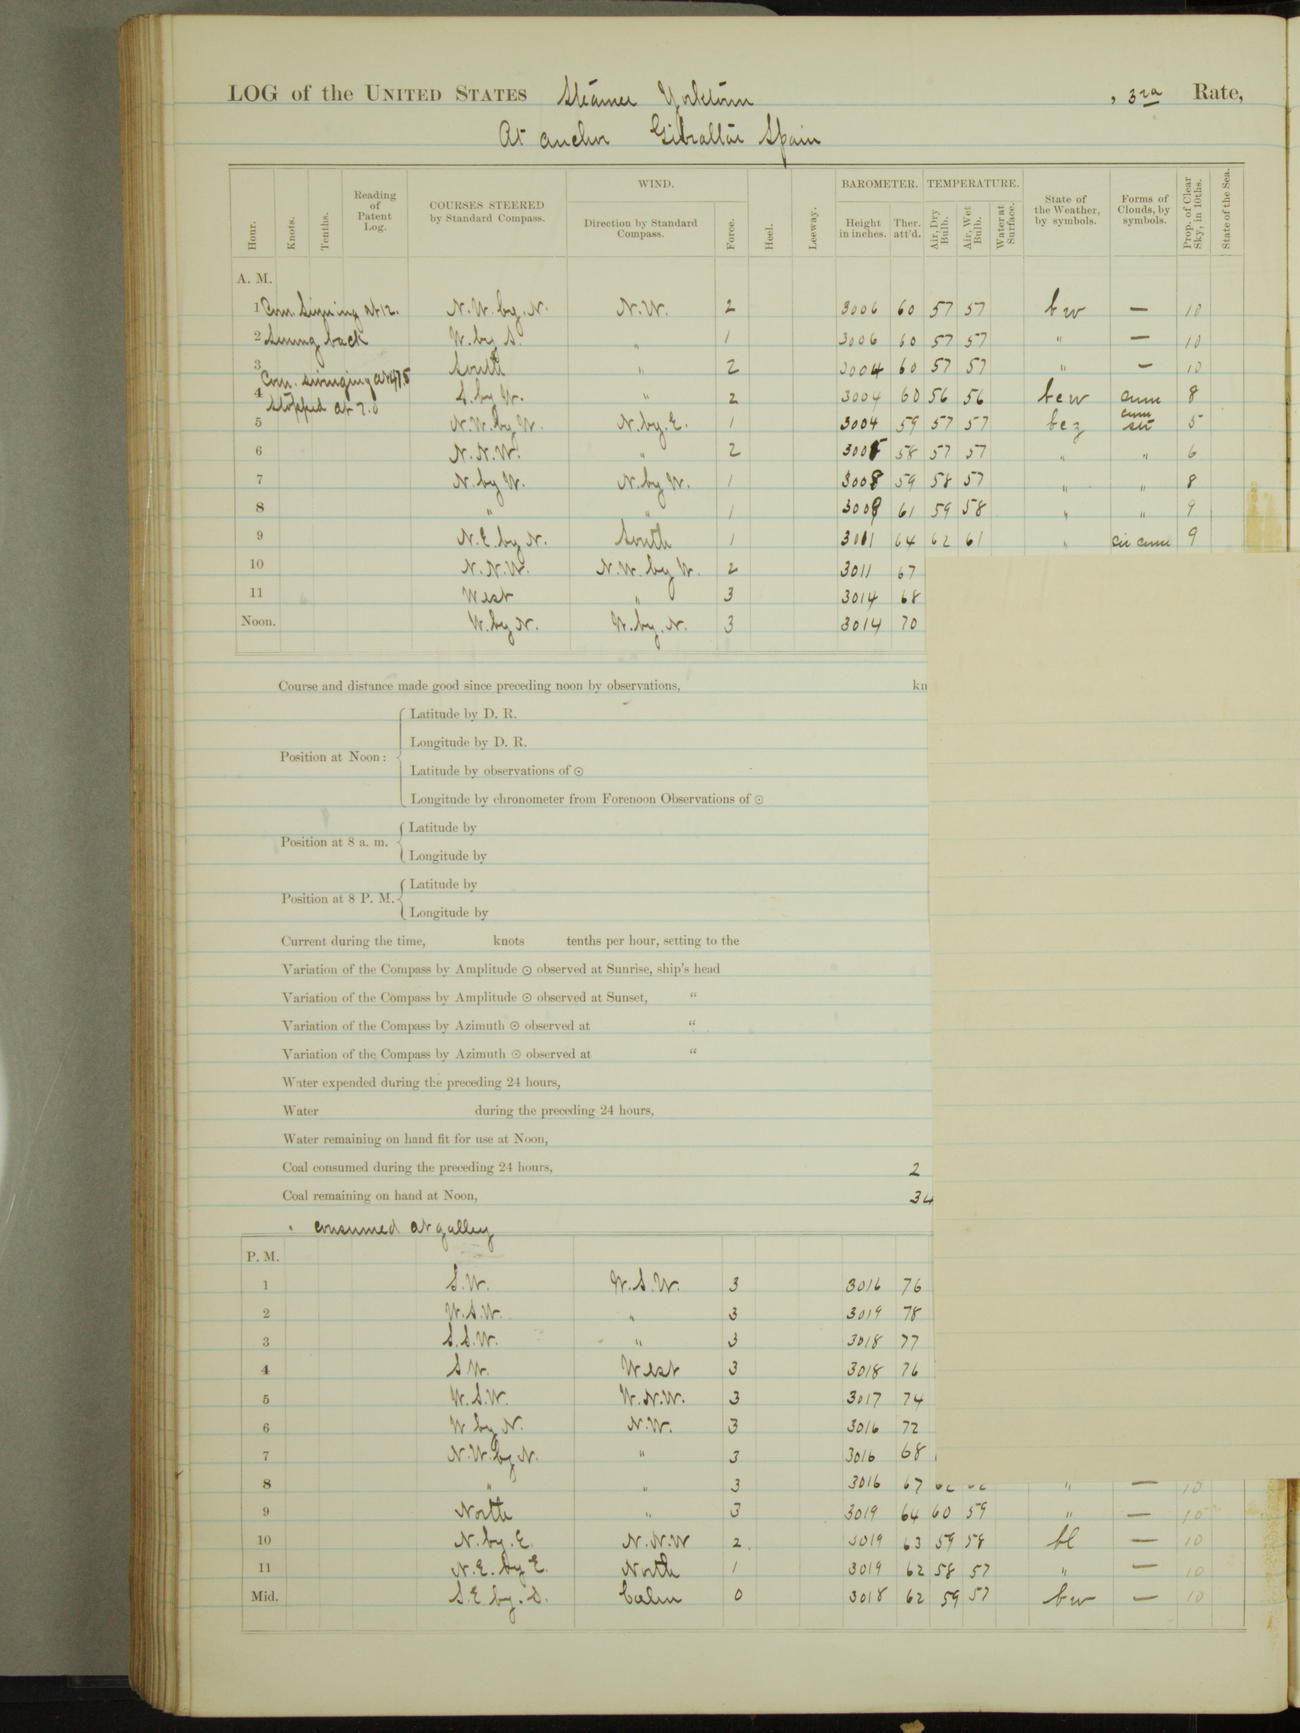 LOG of the UNITED STATES Steamer Yorktown, 3rd Rate,
At anchor Gibraltar Spain
Hour. Knots. Tenths. Reading of Patent Log. COURSES STEERED by Standard Compass. WIND. Direction by Standard Compass. Force. Heel. Leeway. BAROMETER. Height in inches. Ther. att'd. TEMPERATURE. Air, Dry Bulb. Air, Wet Bulb. Water at Surface. State of the Weather, by symbols. Forms of Clouds, by symbols. Prop. of Clear Sky, in 10ths. State of the Sea.
A. M.
1 Com. N.W. by. N. N.W. 2 3006 60 57 57 bw — 10
2 back W. by S. " 1 3006 60 57 57 " — 10
3 South " 2 3004 60 57 57 " — 10
Com. swinging at
4 S. by W. " 2 3004 60 56 56 bcw cum 8
stopped at 7.0
5 N.W. by W. N. by E. 1 3004 59 57 57 bcz cum 5
6 N.N.W. " 2 58 57 57 " " 6
7 N. by W. N. by W. 1 3008 59 58 57 " " 8
8 " " 1 3009 61 59 58 " " 9
9 N.E. by N. South 1 3011 64 62 61 " cir cum 9
10 N.N.W. N.W. by W. 2 3011 67
11 West " 3 3014 68
Noon. W. by N. W. by. N. 3 3014 70
Course and distance made good since preceding noon by observations, kn
Position at Noon:
Latitude by D. R.
Longitude by D. R.
Latitude by observations of ☉
Longitude by chronometer from Forenoon Observations of ☉
Position at 8 a. m.
Latitude by
Longitude by
Position at 8 P. M.
Latitude by
Longitude by
Current during the time, knots tenths per hour, setting to the
Variation of the Compass by Amplitude ☉ observed at Sunrise, ship's head
Variation of the Compass by Amplitude ☉ observed at Sunset, "
Variation of the Compass by Azimuth ☉ observed at "
Variation of the Compass by Azimuth ☉ observed at "
Water expended during the preceding 24 hours,
Water during the preceding 24 hours,
Water remaining on hand fit for use at Noon,
Coal consumed during the preceding 24 hours, 2
Coal remaining on hand at Noon, 34
" consumed at galley
P. M.
1 S.W. W.S.W. 3 3016 76
2 W.S.W. " 3 3019 78
3 S.S.W. " 3 3018 77
4 S.W. West 3 3018 76
5 W.S.W. W.N.W. 3 3017 74
6 W by N. N.W. 3 3016 72
7 N.W. by N. " 3 3016 68
8 " " 3 3016 67 " — 10
9 North " 3 3019 64 60 59 " — 10
10 N. by. E. N.N.W 2. 3019 63 59 58 bc — 10
11 N.E. by E. North 1 3019 62 58 57 " — 10
Mid. S.E by. S. Calm 0 3018 62 59 57 bw — 10